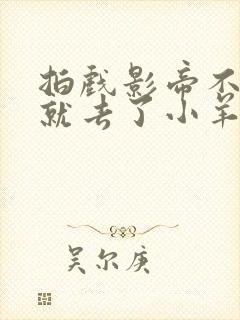 拍戏影帝不
就去了小羊
吴尔庚